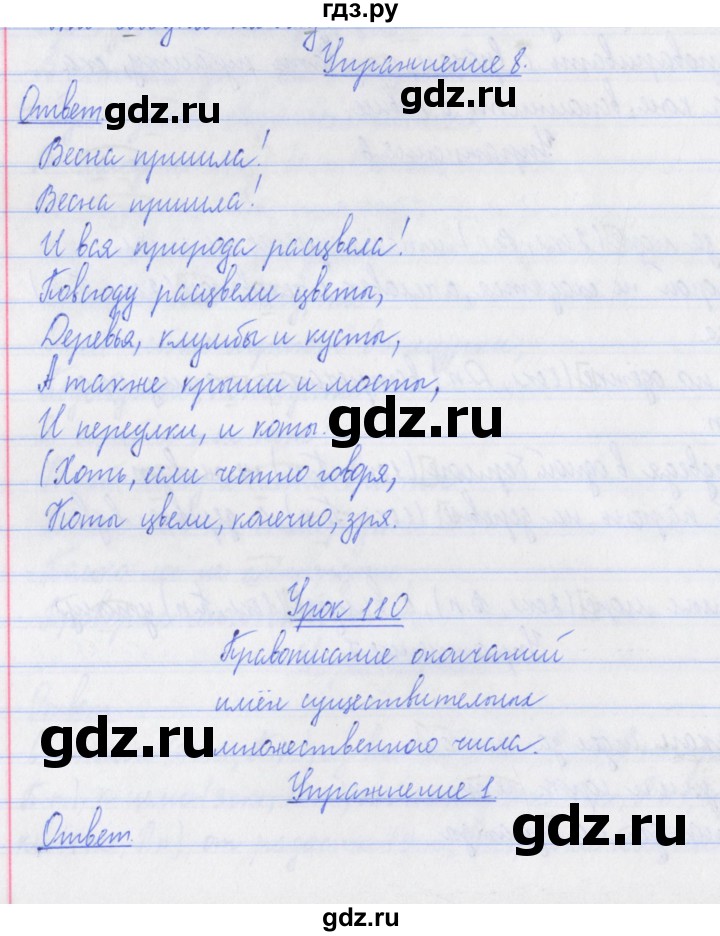 гдз.ру
Упражнение 8.
Ответ.
gdz.ru
gdz.ru
Весна пришла!
Весна пришла!
И вся природа расцвела!
Повсюду расцвели цветы,
Деревья, клумбы и кусты,
А также крыши и мосты,
И переулки, и коты.
gdz.ru
(Хоть, если честно говоря,
Коты цвели, конечно, зря.
Урок 110
Правописание окончаний
имён существительных
gdz.ru
множественного числа.
Упражнение 1
Ответ.
gdz.ru
gdz.ru